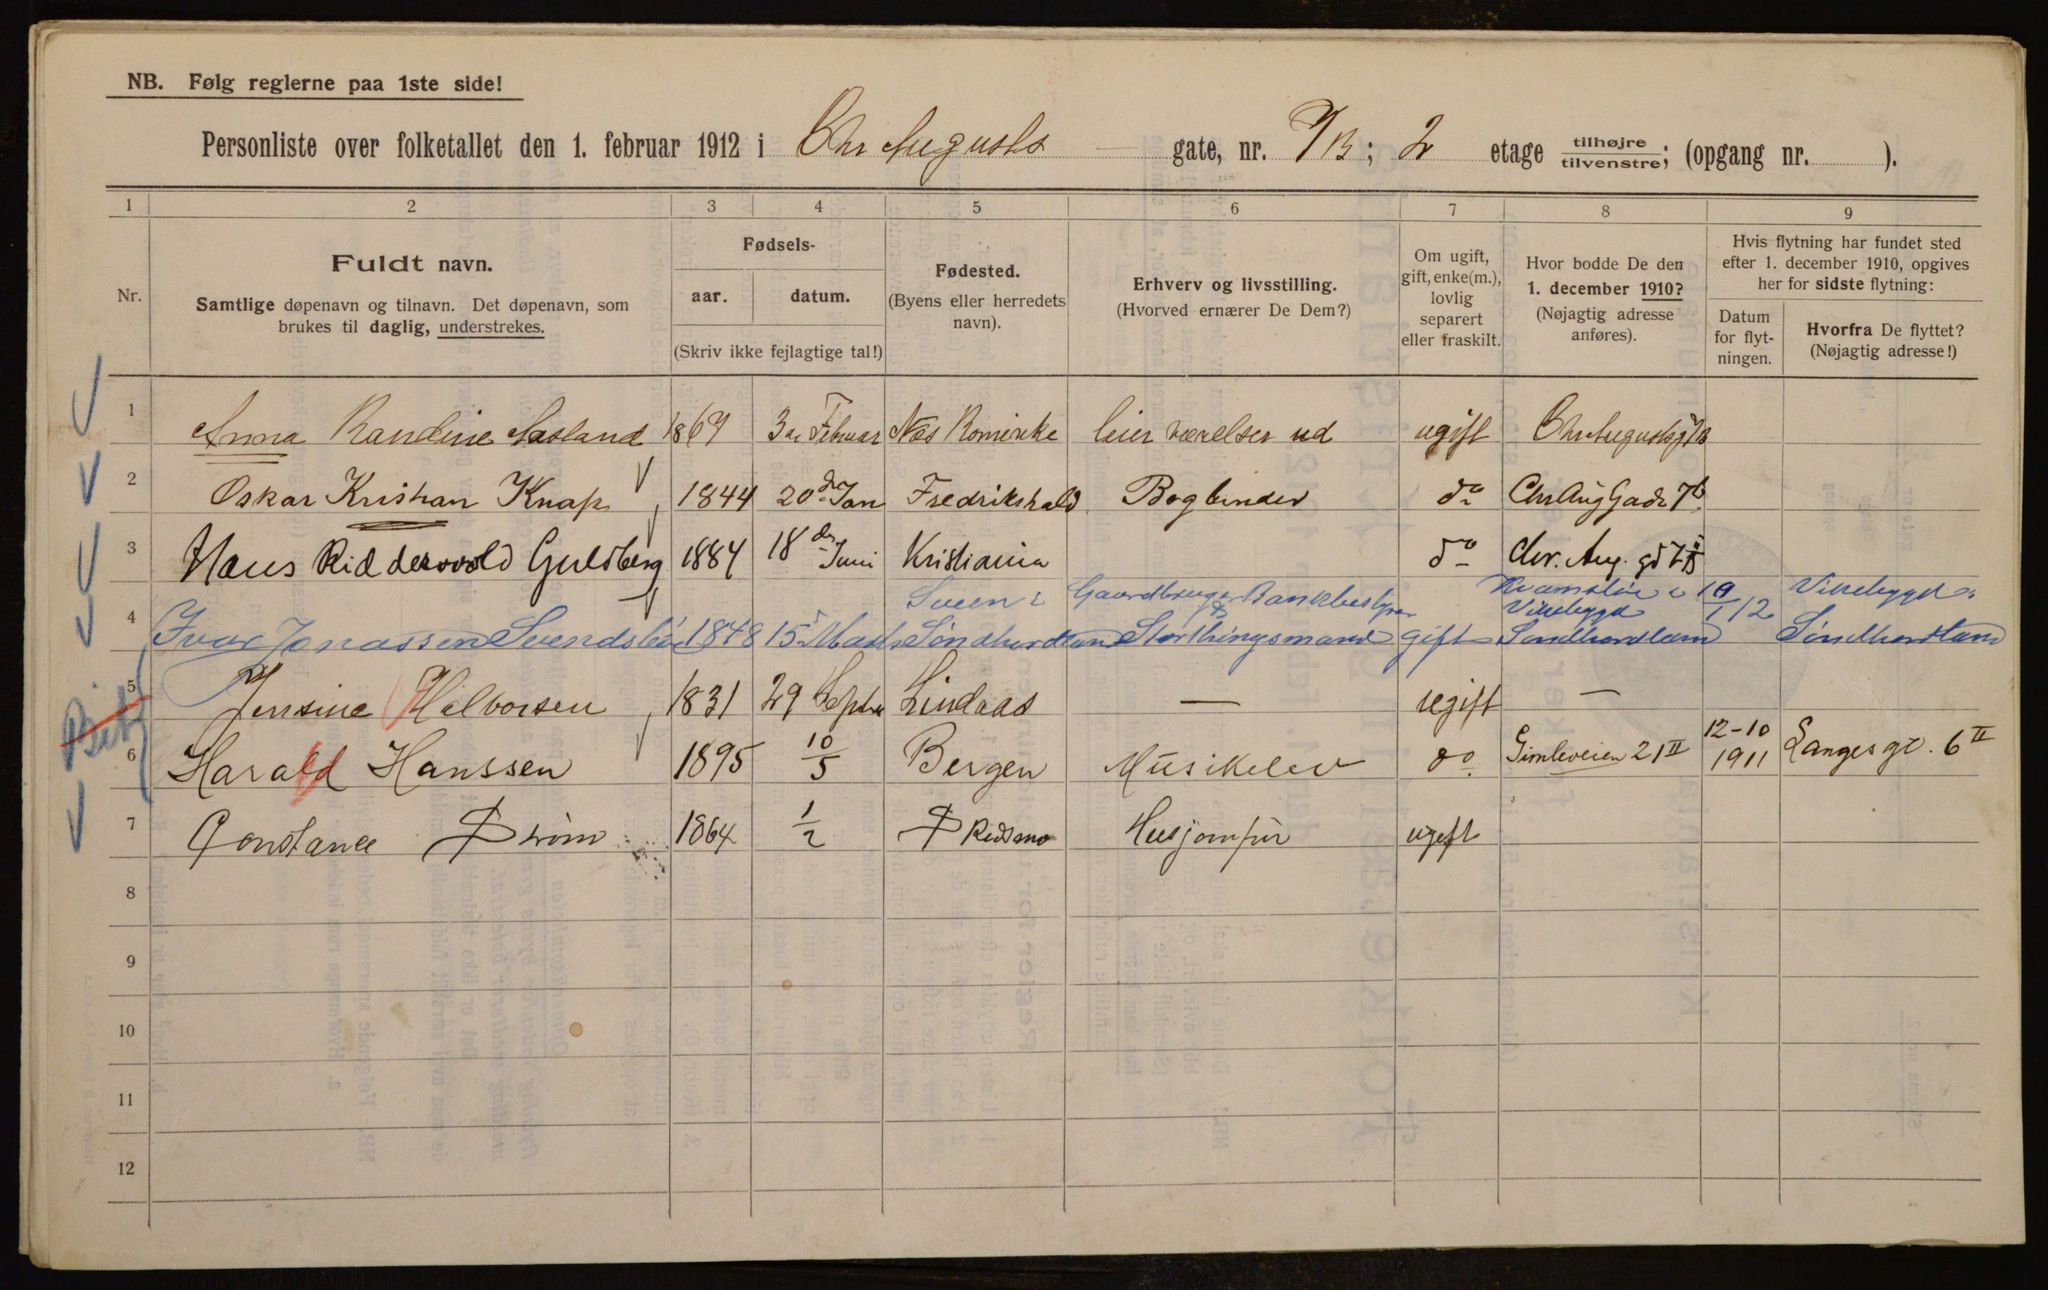 NB. Følg reglerne paa 1ste side!
Personliste over folketallet den 1. februar 1912 i Chr Augusts gate, nr. 7B; 2 etage tilhøjre/tilvenstre; (opgang nr. ).
1 2 3 4 5 6 7 8 9
Nr.
Fuldt navn.
Samtlige døpenavn og tilnavn. Det døpenavn, som
brukes til daglig, understrekes.
Fødsels-
aar. datum.
(Skriv ikke fejlagtige tal!)
Fødested.
(Byens eller herredets
navn).
Erhverv og livsstilling.
(Hvorved ernærer De Dem?)
Om ugift,
gift, enke(m.),
lovlig
separert
eller fraskilt.
Hvor bodde De den
1. december 1910?
(Nøjagtig adresse
anføres).
Hvis flytning har fundet sted
efter 1. december 1910, opgives
her for sidste flytning:
Datum
for flyt-
ningen.
Hvorfra De flyttet?
(Nøjagtig adresse!)
1 Anna Randine Aasland 1869 3de Februar Næs Romerike leier værelser ud ugift Chr Augustsgd 7B
2 Oskar Kristian Knap 1844 20de Jan Fredrikshald Bogbinder do Chr Aug Gade 7b
3 Hans Riddervold Guldberg 1884 18de Juni Kristiania do Chr. Aug. gd 7B
4 Ivar Jonassen Svendsbø 1848 15 Marts Sveen i Søndhordland Gaardbruger Bankbestyrer & Storthingsmand gift Vikebygd Søndhordland 19/1 12 Vikebygd i Søndhordland
5 Jensine Halvorsen 1831 29 Septr Lindaas — ugift —
6 Harald Hanssen 1895 10/5 Bergen Musikelev do Gimleveien 21 II 12-10 1911 Langes gt. 6 II
7 Constance Strøm 1864 1/2 Skedsmo Husjomfru ugift
8
9
10
11
12